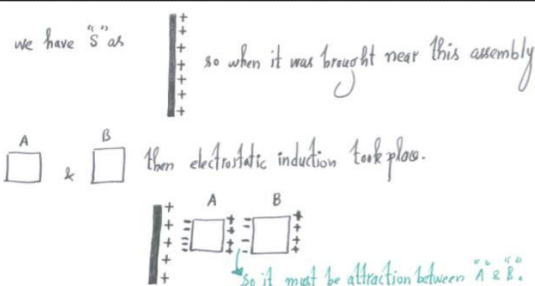 we have "S" as
+
+
+
+
+
+
+
so when it was brought near this assembly
A
B
& then electrostatic induction took place.
A B
+
+
+
+
+
+
- - - -
+ + + +
- - - -
+ + + +
So it must be attraction between "A" & "B".